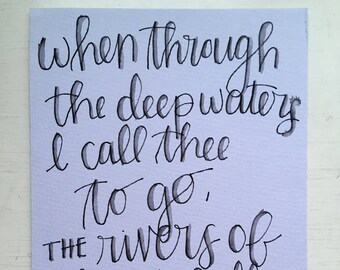 when through
the deep waters
I call thee
to go,
THE rivers of